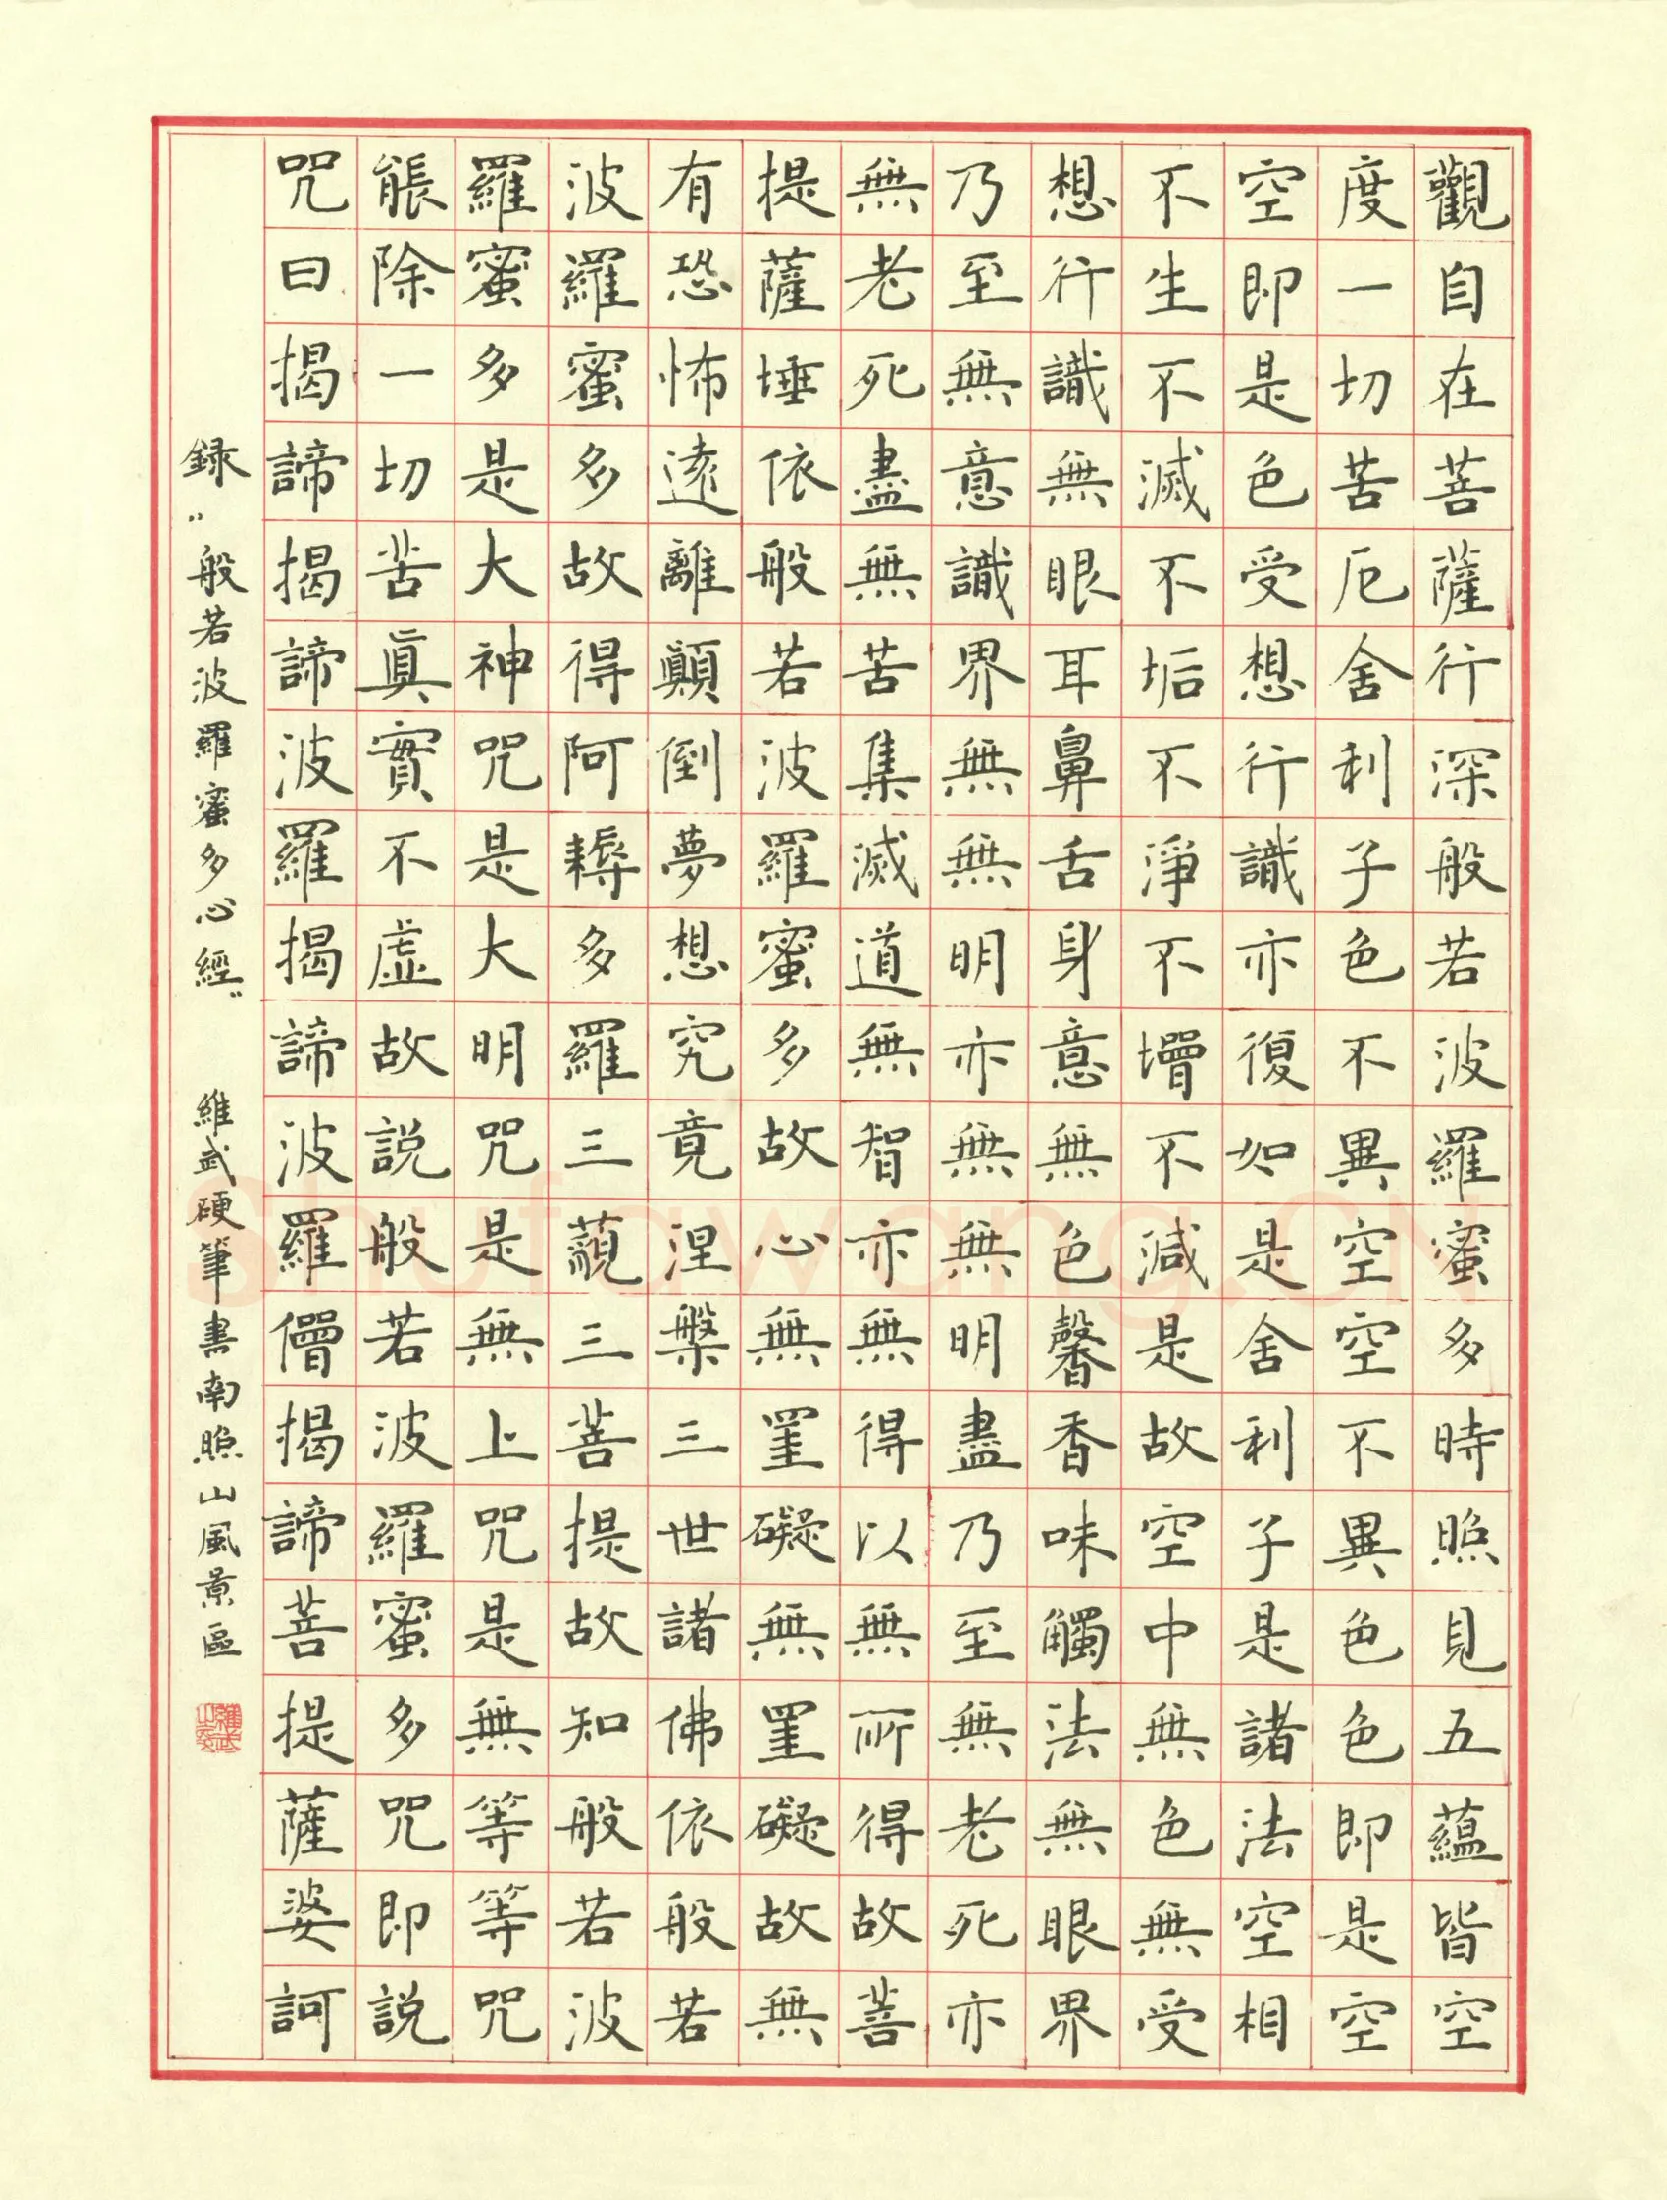 觀自在菩薩行深般若波羅蜜多時照見五蘊皆空
度一切苦厄舍利子色不異空空不異色色即是空
空即是色受想行識亦復如是舍利子是諸法空相
不生不滅不垢不淨不增不減是故空中無色無受
想行識無眼耳鼻舌身意無色馨香味觸法無眼界
乃至無意識界無無明亦無無明盡乃至無老死亦
無老死盡無苦集滅道無智亦無得以無所得故菩
提薩埵依般若波羅蜜多故心無罣礙無罣礙故無
有恐怖遠離顛倒夢想究竟涅槃三世諸佛依般若
波羅蜜多故得阿耨多羅三藐三菩提故知般若波
羅蜜多是大神咒是大明咒是無上咒是無等等咒
能除一切苦眞實不虛故説般若波羅蜜多咒即説
咒曰揭諦揭諦波羅揭諦波羅僧揭諦菩提薩婆訶
録"般若波羅蜜多心經" 維武硬筆書南照山風景區
shufawang.CN